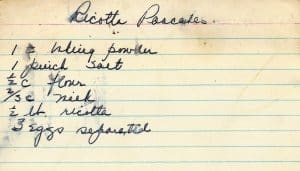 Ricotta Pancakes.
1 t baking powder
1 pinch salt
½ c flour
⅔ c milk
½ lb. ricotta
3 eggs separated